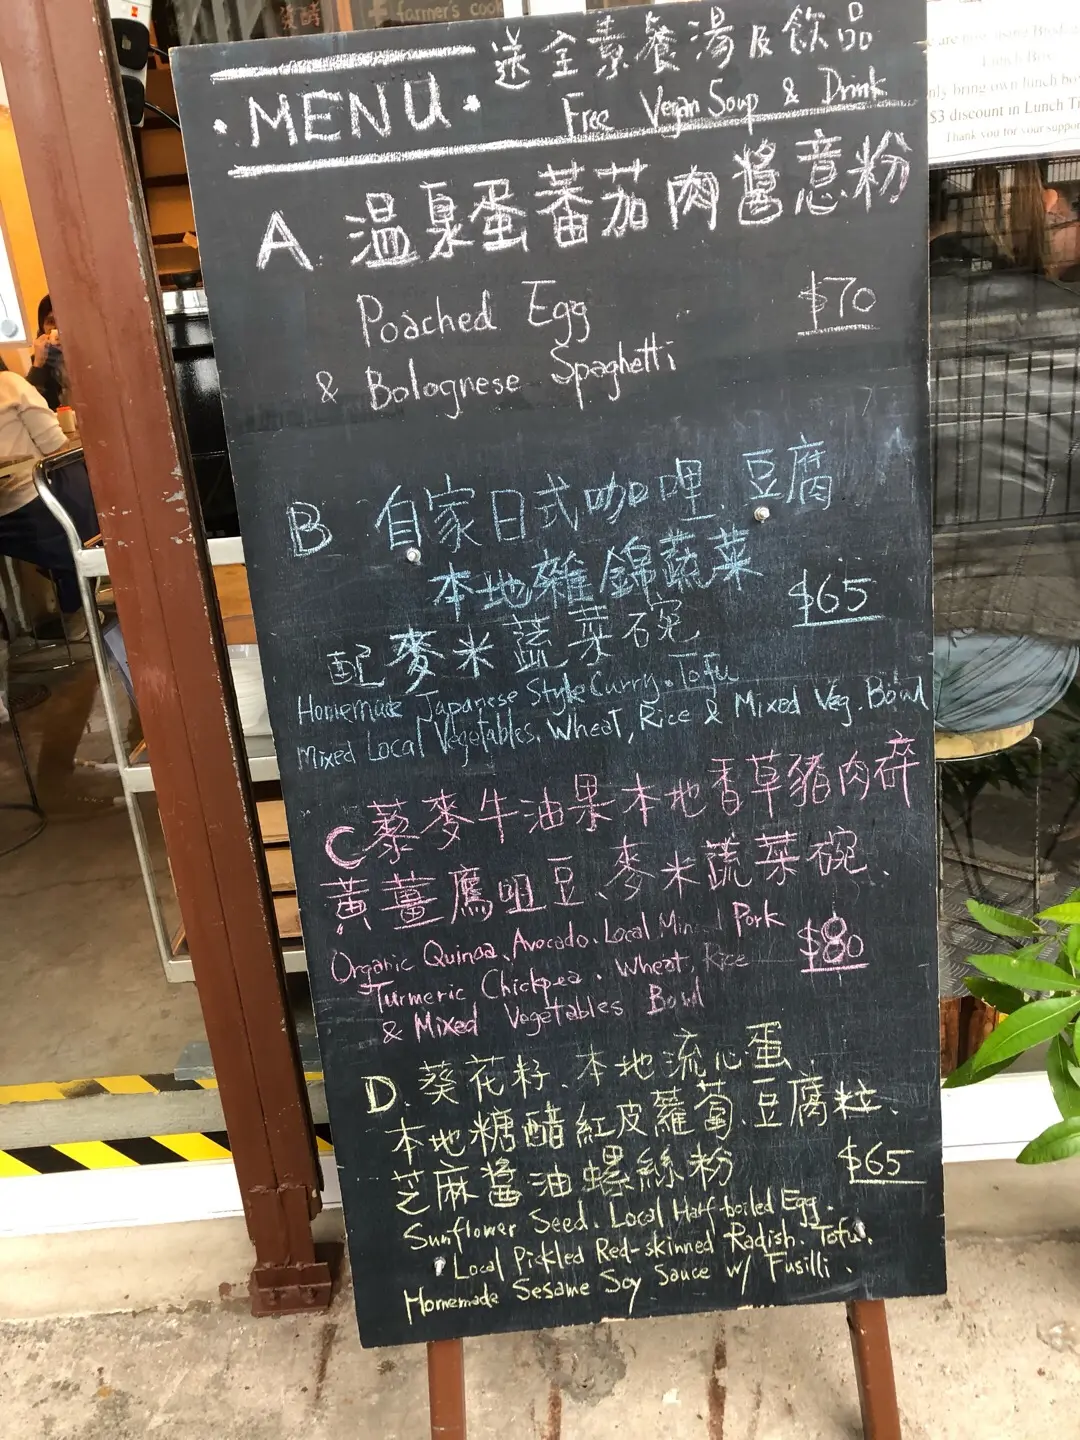 farmer's cook
送全素餐湯及飲品
·MENU·
Free Vegan Soup & Drink
A. 温泉蛋蕃茄肉醬意粉
Poached Egg
$70
& Bolognese Spaghetti
B 自家日式咖喱.豆腐
本地雜錦蔬菜
$65
配麥米蔬菜碗
Homemade Japanese Style Curry. Tofu
Mixed Local Vegetables. Wheat, Rice & Mixed Veg. Bowl
C藜麥牛油果本地香草豬肉碎
黃薑鷹咀豆、麥米蔬菜碗.
Organic Quinoa, Avocado. Local Pork
$80
Turmeric Chickpea. Wheat, Rice
& Mixed Vegetables Bowl
D. 葵花籽.本地流心蛋
本地糖醋紅皮蘿蔔.豆腐粒.
芝麻醬油螺絲粉
$65
Sunflower Seed. Local Half-boiled Egg.
Local Pickled Red-skinned Radish. Tofu.
Homemade Sesame Soy Sauce w/ Fusilli.
are now using
Lunch Box
bring own lunch box
$3 discount in Lunch
Thank you for your support